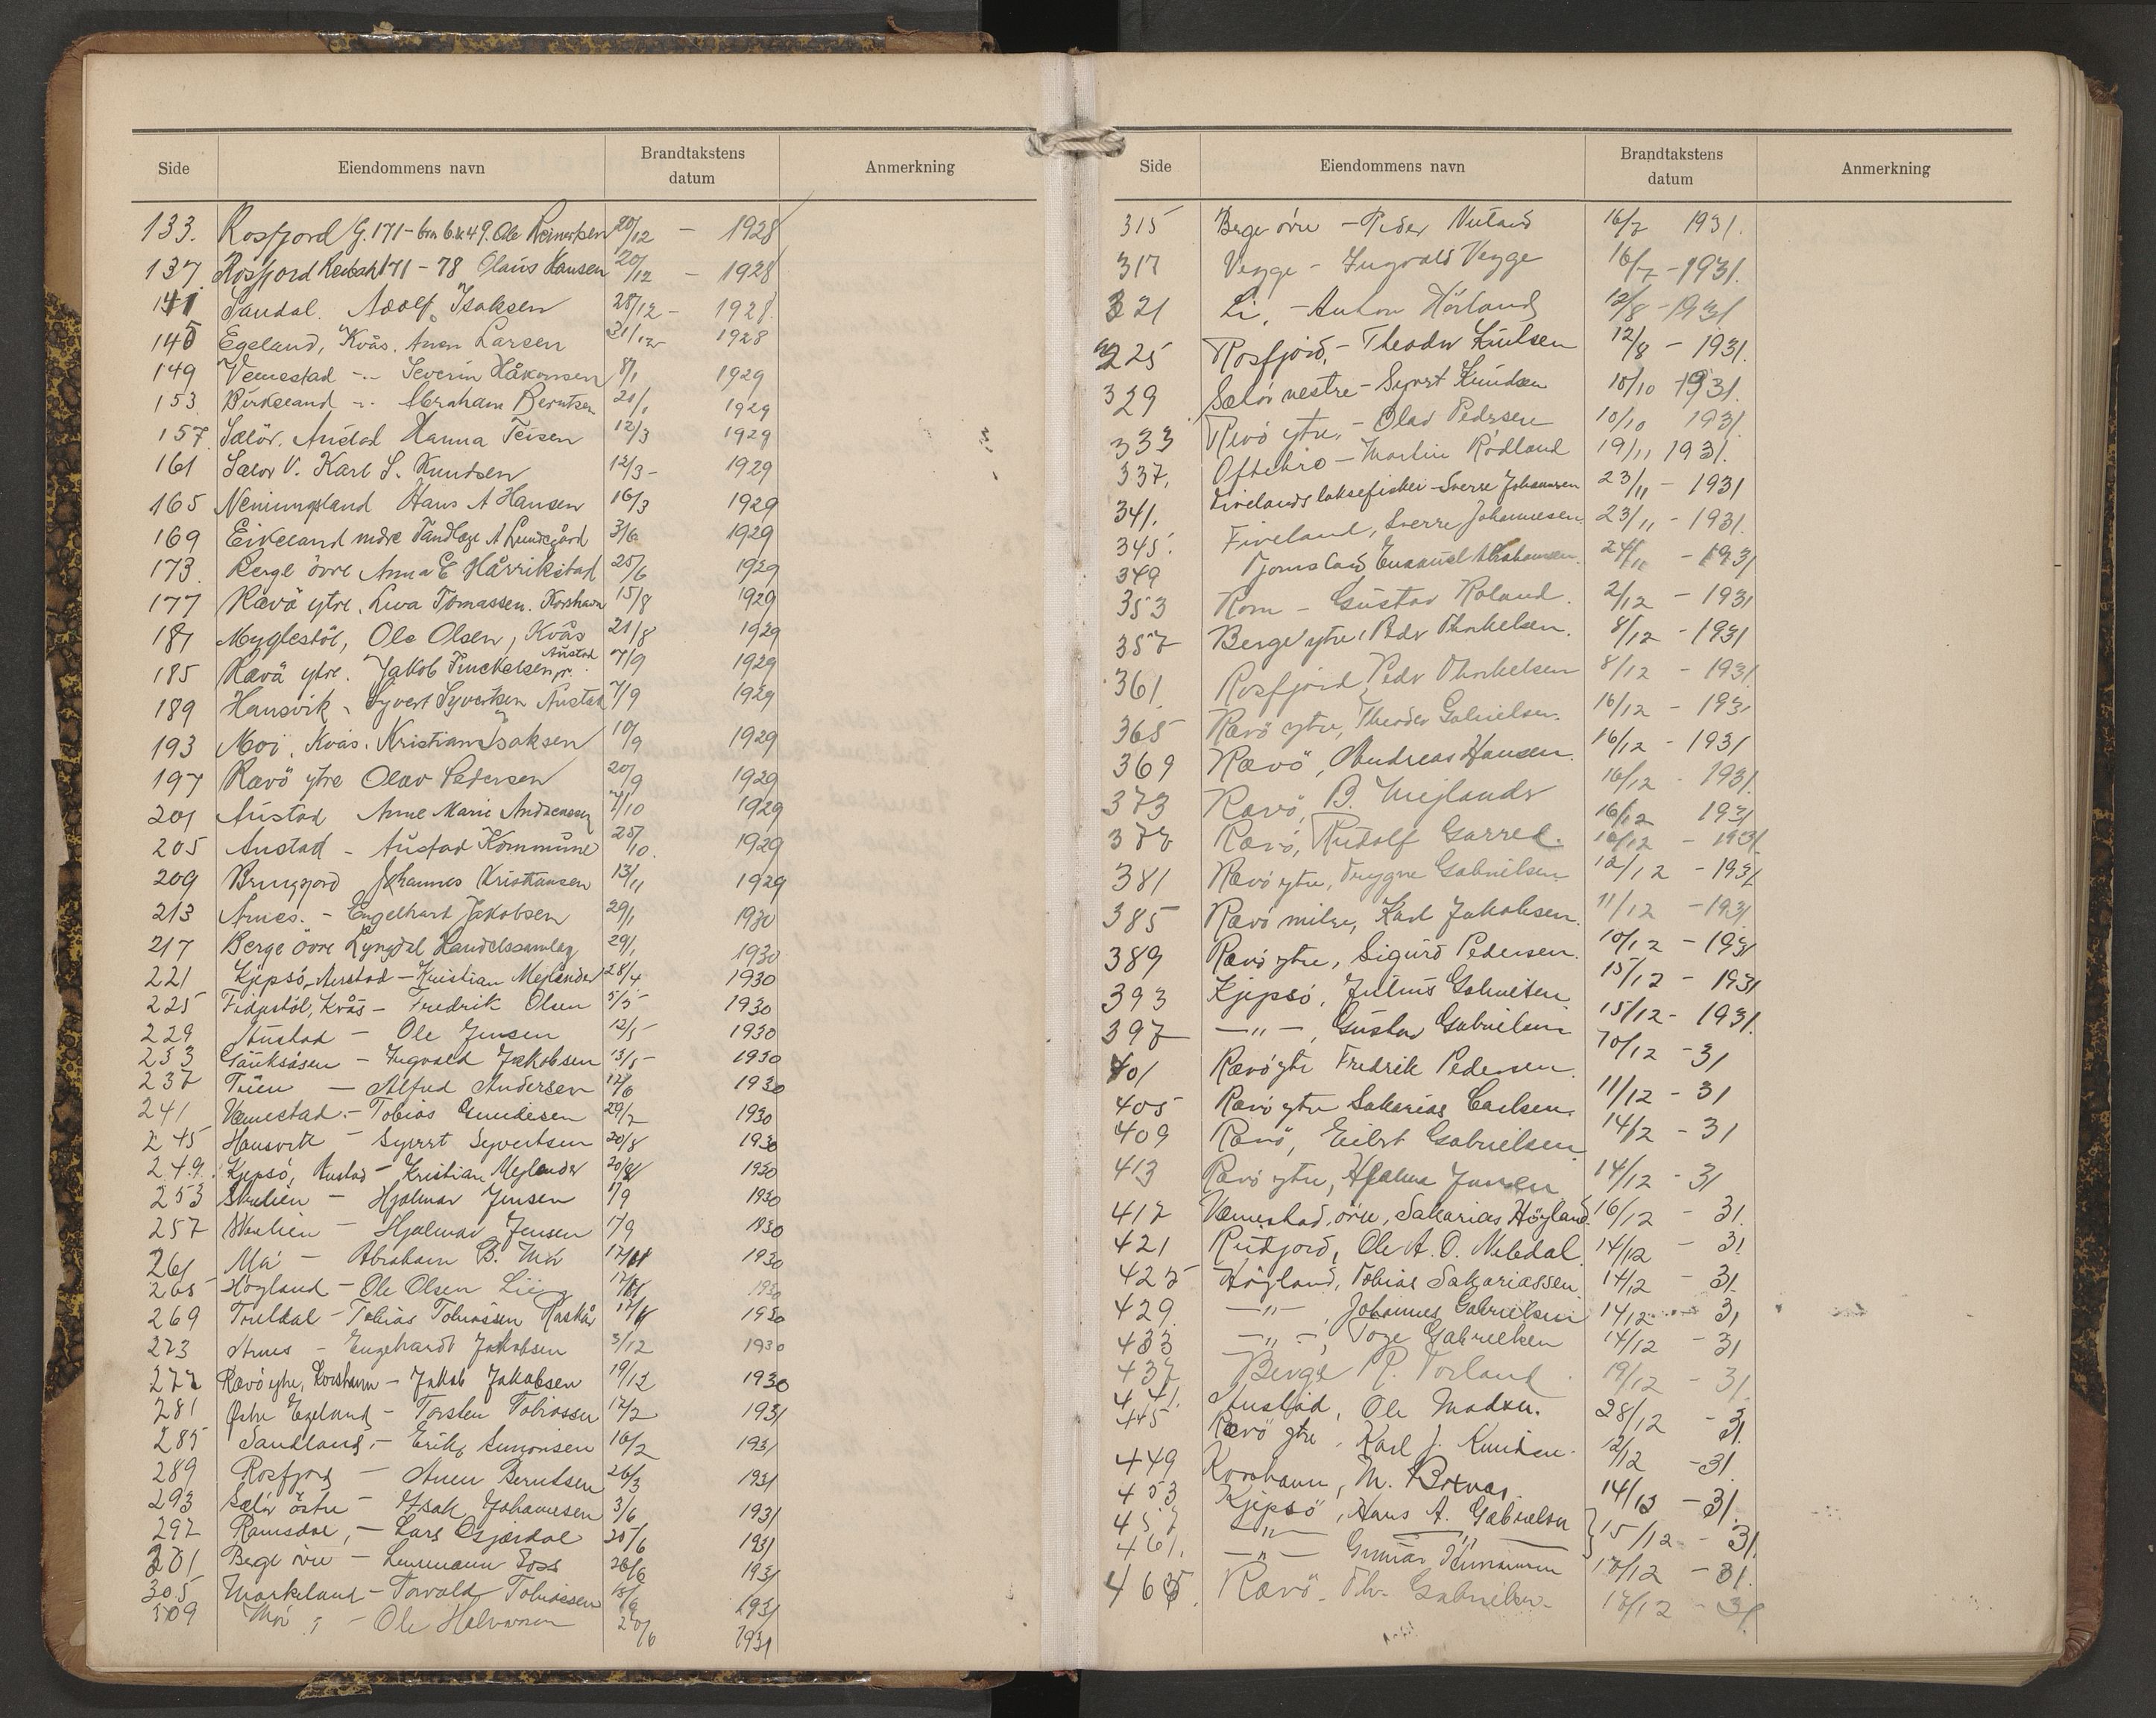 Side Eiendommens navn Brandtakstens datum Anmerkning
133. Rosfjord G. 171 - brn 6. & 49. Ole Reinertsen 20/12 - 1928
137 Rosfjord 171 - 78 Olaus Hansen 20/12 - 1928
141 Sandal. Adolf Isaksen 28/12 - 1928.
145 Egeland, Kvås. Aven Larsen 31/12 1928
149 Vemestad -"- Severin Håkonsen 8/1 1929
153 Birkeland -"- Abraham Berntsen 21/1 1929
157. Sælör. Austad Hanna Teisen 12/3 1929
161 Sælor V. Karl S. Knudsen 12/3 - 1929
165 Neningsland Hans A Hansen 16/3 1929
169 Eikeland nedre Tandlæge A Lundegård 3/6 1929
173. Berge övre Anna E Hårrikstad 25/6 1929
177 Rævö ytre. Lewa Tomassen. Korshavn 15/8 1929
181 Myglestöl, Ole Olsen, Kvås 21/8 1929
185 Rævä ytre. Jakob Austad 7/9 1929
189 Hansvik - Syvert Syvertsen Austad 7/9 1929
193 Moi. Kvås. Kristian Isaksen 10/9 1929
197 Rævö ytre Olav Pedersen 20/9 1929
201 Austad Anne Marie Andreassen 7/10 1929
205 Austad - Austad Kommune 25/10. 1929
209 Bringsjord Johannes Kristiansen 13/11 1929
213 Arnes. - Engelhart Jakobsen 29/1 1930
217 Berge övre Lyngdal Handelssamlag 29/1 1930
221 Kjepsö, Austad - Kristian Mejlænder 28/4 1930
225 Fidjestöl, Kvås - Fredrik Olsen 5/5 1930
229 Austad - Ole Jensen 12/5 1930
233 Gauksåsen - Ingvald Jakobsen 13/5 - 1930
237 Tuen - Alfred Andersen 12/6 1930
241 Vemestad. - Tobias Gundesen 29/7 1930
245 Hansvik - Syvert Syvertsen 20/8 1930
249. Kjepsö, Austad - Kristian Mejlænder 20/8 1930
253 Skulien - Hjalmar Jensen 1/9 1930
257 Skulien - Hjalmar Jensen 1/9 1930
261 Mö - Abraham B. Mö 12/11 1930
265 Högland - Ole Olsen Lie 12/11 1930
269 Treldal - Tobias Tobiassen Raskås 12/11 1930
273 Arnes - Engehardt Jakobsen 3/12 1930
277 Rævö ytre, Korshamn - Jakob Jakobsen 19/12 1930
281 Østre Egeland - Torsten Tobiassen 12/2 1931
285 Sandland, - Erik Simonsen 16/2 1931
289 Rosfjord - Aven Berntsen 26/3 1931
293 Sælör östre - Isak Johannesen 3/6 1931
297 Ramsdal, - Lars Osjordal 25/6 1931
301 Berge övre - 26/6 1931
305 Markeland - Torvald Tobiassen /6 1931
309 Mö, - Ole Halvorsen 20/6 1931
Side Eiendommens navn Brandtakstens datum Anmerkning
315 Berge övre - Peder Nuland 16/7 1931.
317 Vegge - Ingvald Vegge 16/7 - 1931.
321 Li, - Anton Hörland 12/8 - 1931
325 Rosfjord, - Theodor Knutsen 12/8 - 1931.
329 Sælör vestre - Syvert Knudsen 10/10 1931.
333 Rævö ytre, - Olav Pedersen 10/10 1931.
337. Oftebro - Martin Rödland 19/11 1931.
341. Fivelands laksefiskeri - Sverre Johannesen 23/11 - 1931
345. Fiveland, Sverre Johannesen 23/11 - 1931.
349 Tjomsland Emanuel Abrahamsen. 24/11 - 1931
353 Rom - Gustav Roland. 2/12 - 1931
357 Berge ytre, Peder Thorkelsen. 8/12 - 1931
361. Rosfjord Peder Thorkelsen 8/12 - 1931.
365 Rævö ytre, Theodor Gabrielsen. 16/12 - 1931
369 Rævö, Andreas Hansen. 16/12 - 1931
373 Rævö, B. Mejlænder 16/12 - 1931.
377 Rævö, Rudolf Garrel. 16/12 1931
16/12 - 1931
381 Rævö ytre, Trygve Gabrielsen 12/12 - 1931
385 Rævö midtre, Karl Jakobsen. 11/12 - 1931
389 Rævö ytre, Sigurd Pedersen. 10/12 - 1931
393 Kjepsö, Julius Gabrielsen 15/12 - 1931
397 -"-, Gustav Gabrielsen 15/12 - 1931.
401 Rævö ytre Fredrik Pedersen. 10/12 - 31
405 Rævö ytre Sakarias Carlsen. 11/12 - 31
409 Rævö, Eilert Gabrielsen 14/12 - 31
413 Rævö ytre, Hjalmar Jensen 14/12 - 31
417 Vemestad, övre, Sakarias Högland. 16/12 - 31.
421 Rudjord, Ole A. O. Nebdal 14/12 - 31
425 Högland, Tobias Sakariassen 14/12 - 31.
429 -"-, Johannes Gabrielsen 14/12 - 31
433 -"-, Toge Gabrielsen 14/12 - 31
437 Berge P. Torland. 19/12 - 31
441. Austad, Ole Madsen. 28/12 - 31.
445 Rævö ytre, Karl J. Knudsen. 12/12 - 31
449 Korshavn, M. 14/12 - 31.
453 Kjepsö, Hans A. Gabrielsen } 15/12 - 31.
457 -"- -"-
461. -"- Gunnar 17/12 - 31.
465. Rævö. Th. Gabrielsen - 17/12 - 31